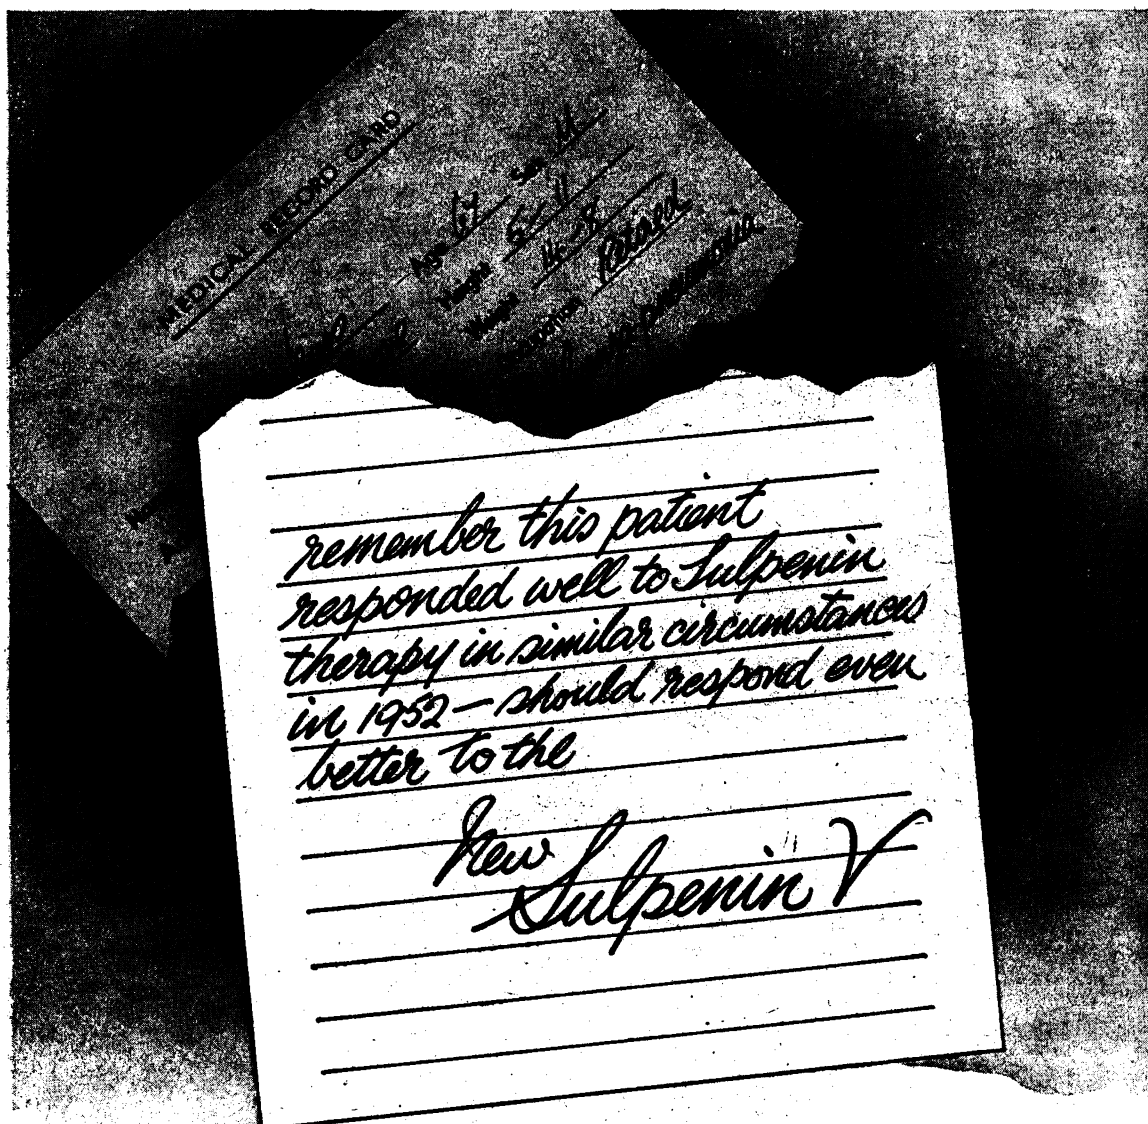 MEDICAL RECORD CARD
Age 67 Sex M
Height 5-11
Weight
Occupation Retired
remember this patient
responded well to Sulpenin
therapy in similar circumstances
in 1952 — should respond even
better to the
New
Sulpenin V